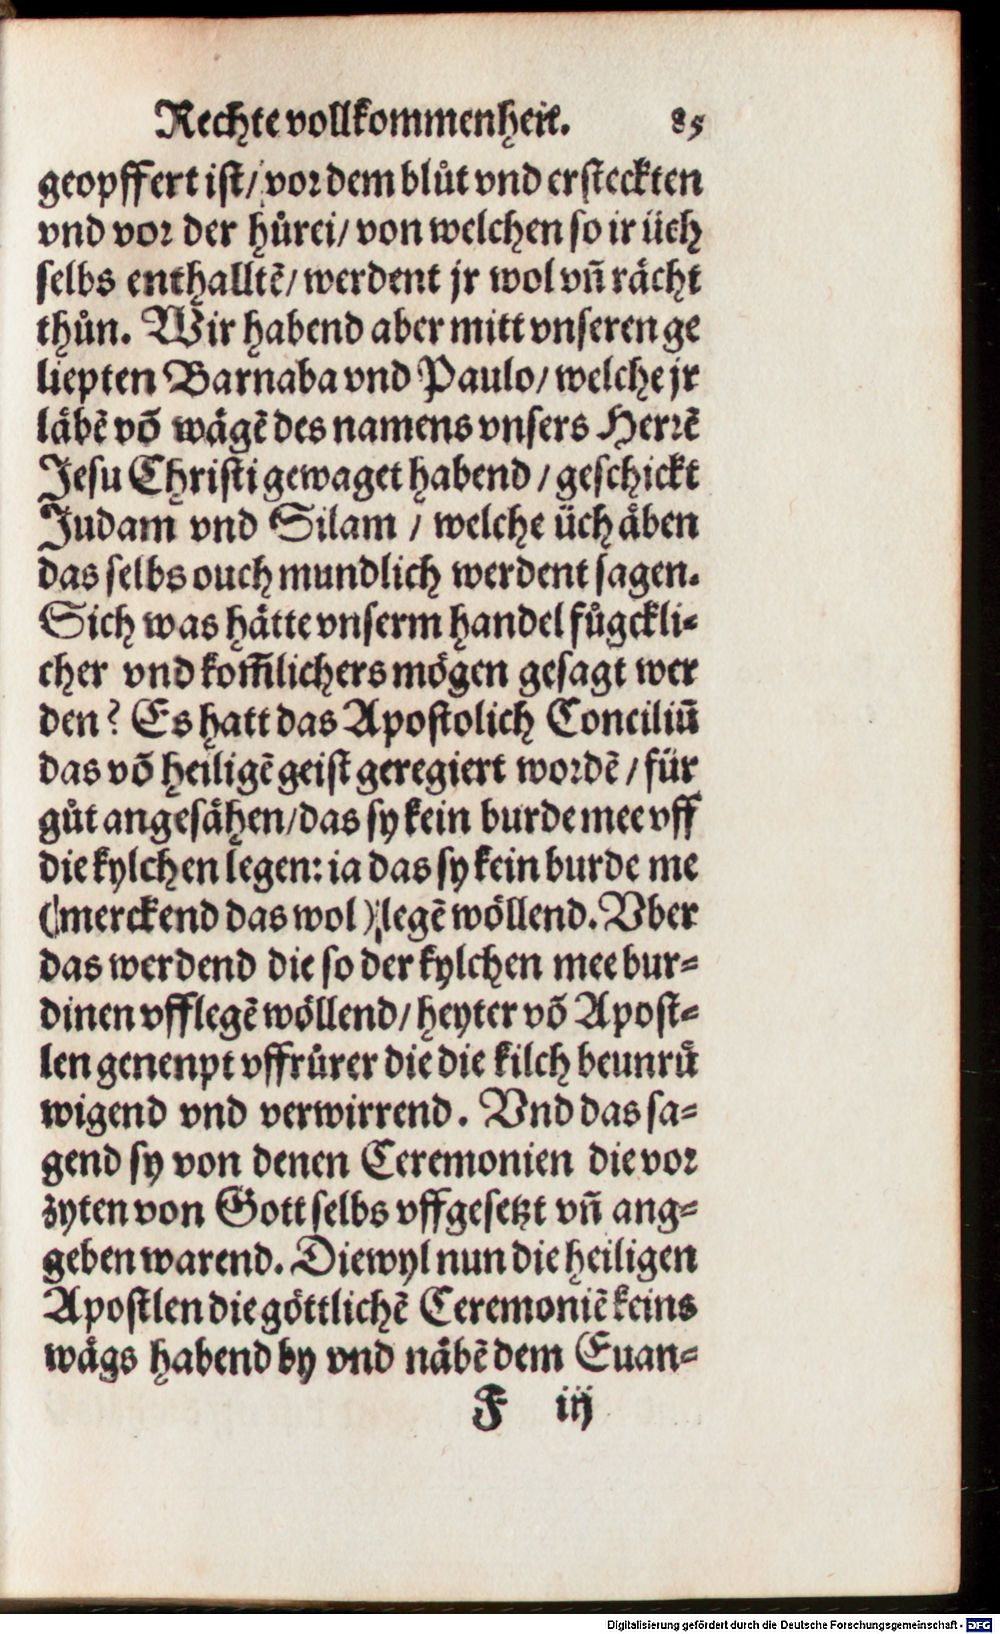 Rechte vollkommenheit. 85
geopffert ist/ vor dem blůt vnd ersteckten
vnd vor der hůrei/ von welchen so ir üch
selbs enthalltē/ werdent jr wol vñ rächt
thůn. Wir habend aber mitt vnseren ge
liepten Barnaba vnd Paulo/ welche jr
läbē võ wägē des namens vnsers Herrē
Jesu Christi gewaget habend / geschickt
Judam vnd Silam / welche üch äben
das selbs ouch mundlich werdent sagen.
Sich was hätte vnserm handel fůgckli⸗
cher vnd kom̃lichers mögen gesagt wer
den? Es hatt das Apostolich Conciliū
das võ heiligē geist geregiert wordē / für
gůt angesähen/ das sy kein burde mee vff
die kylchen legen: ia das sy kein burde me
(merckend das wol) legē wöllend. Vber
das werdend die so der kylchen mee bur⸗
dinen vfflegē wöllend/ heyter võ Apost⸗
len genenpt vffrůrer die die kilch beunrů
wigend vnd verwirrend. Vnd das sa⸗
gend sy von denen Ceremonien die vor
zyten von Gott selbs vffgesetzt vñ ang⸗
geben warend. Diewyl nun die heiligen
Apostlen die göttlichē Ceremoniē keins
wägs habend by vnd näbē dem Euan⸗
F iij
Digitalisierung gefördert durch die Deutsche Forschungsgemeinschaft - DFG